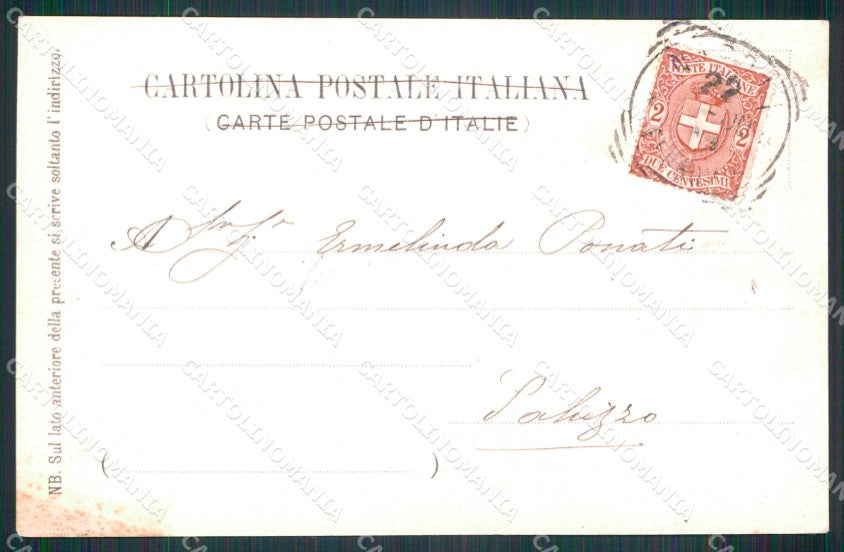 CARTOLINA POSTALE ITALIANA
(CARTE POSTALE D'ITALIE)
POSTE ITALIANE
2 2
DUE CENTESIMI
27
A Ermelinda Ponati
Saluzzo
( )
NB. Sul lato anteriore della presente si scrive soltanto l'indirizzo.
CARTOLINOMANIA